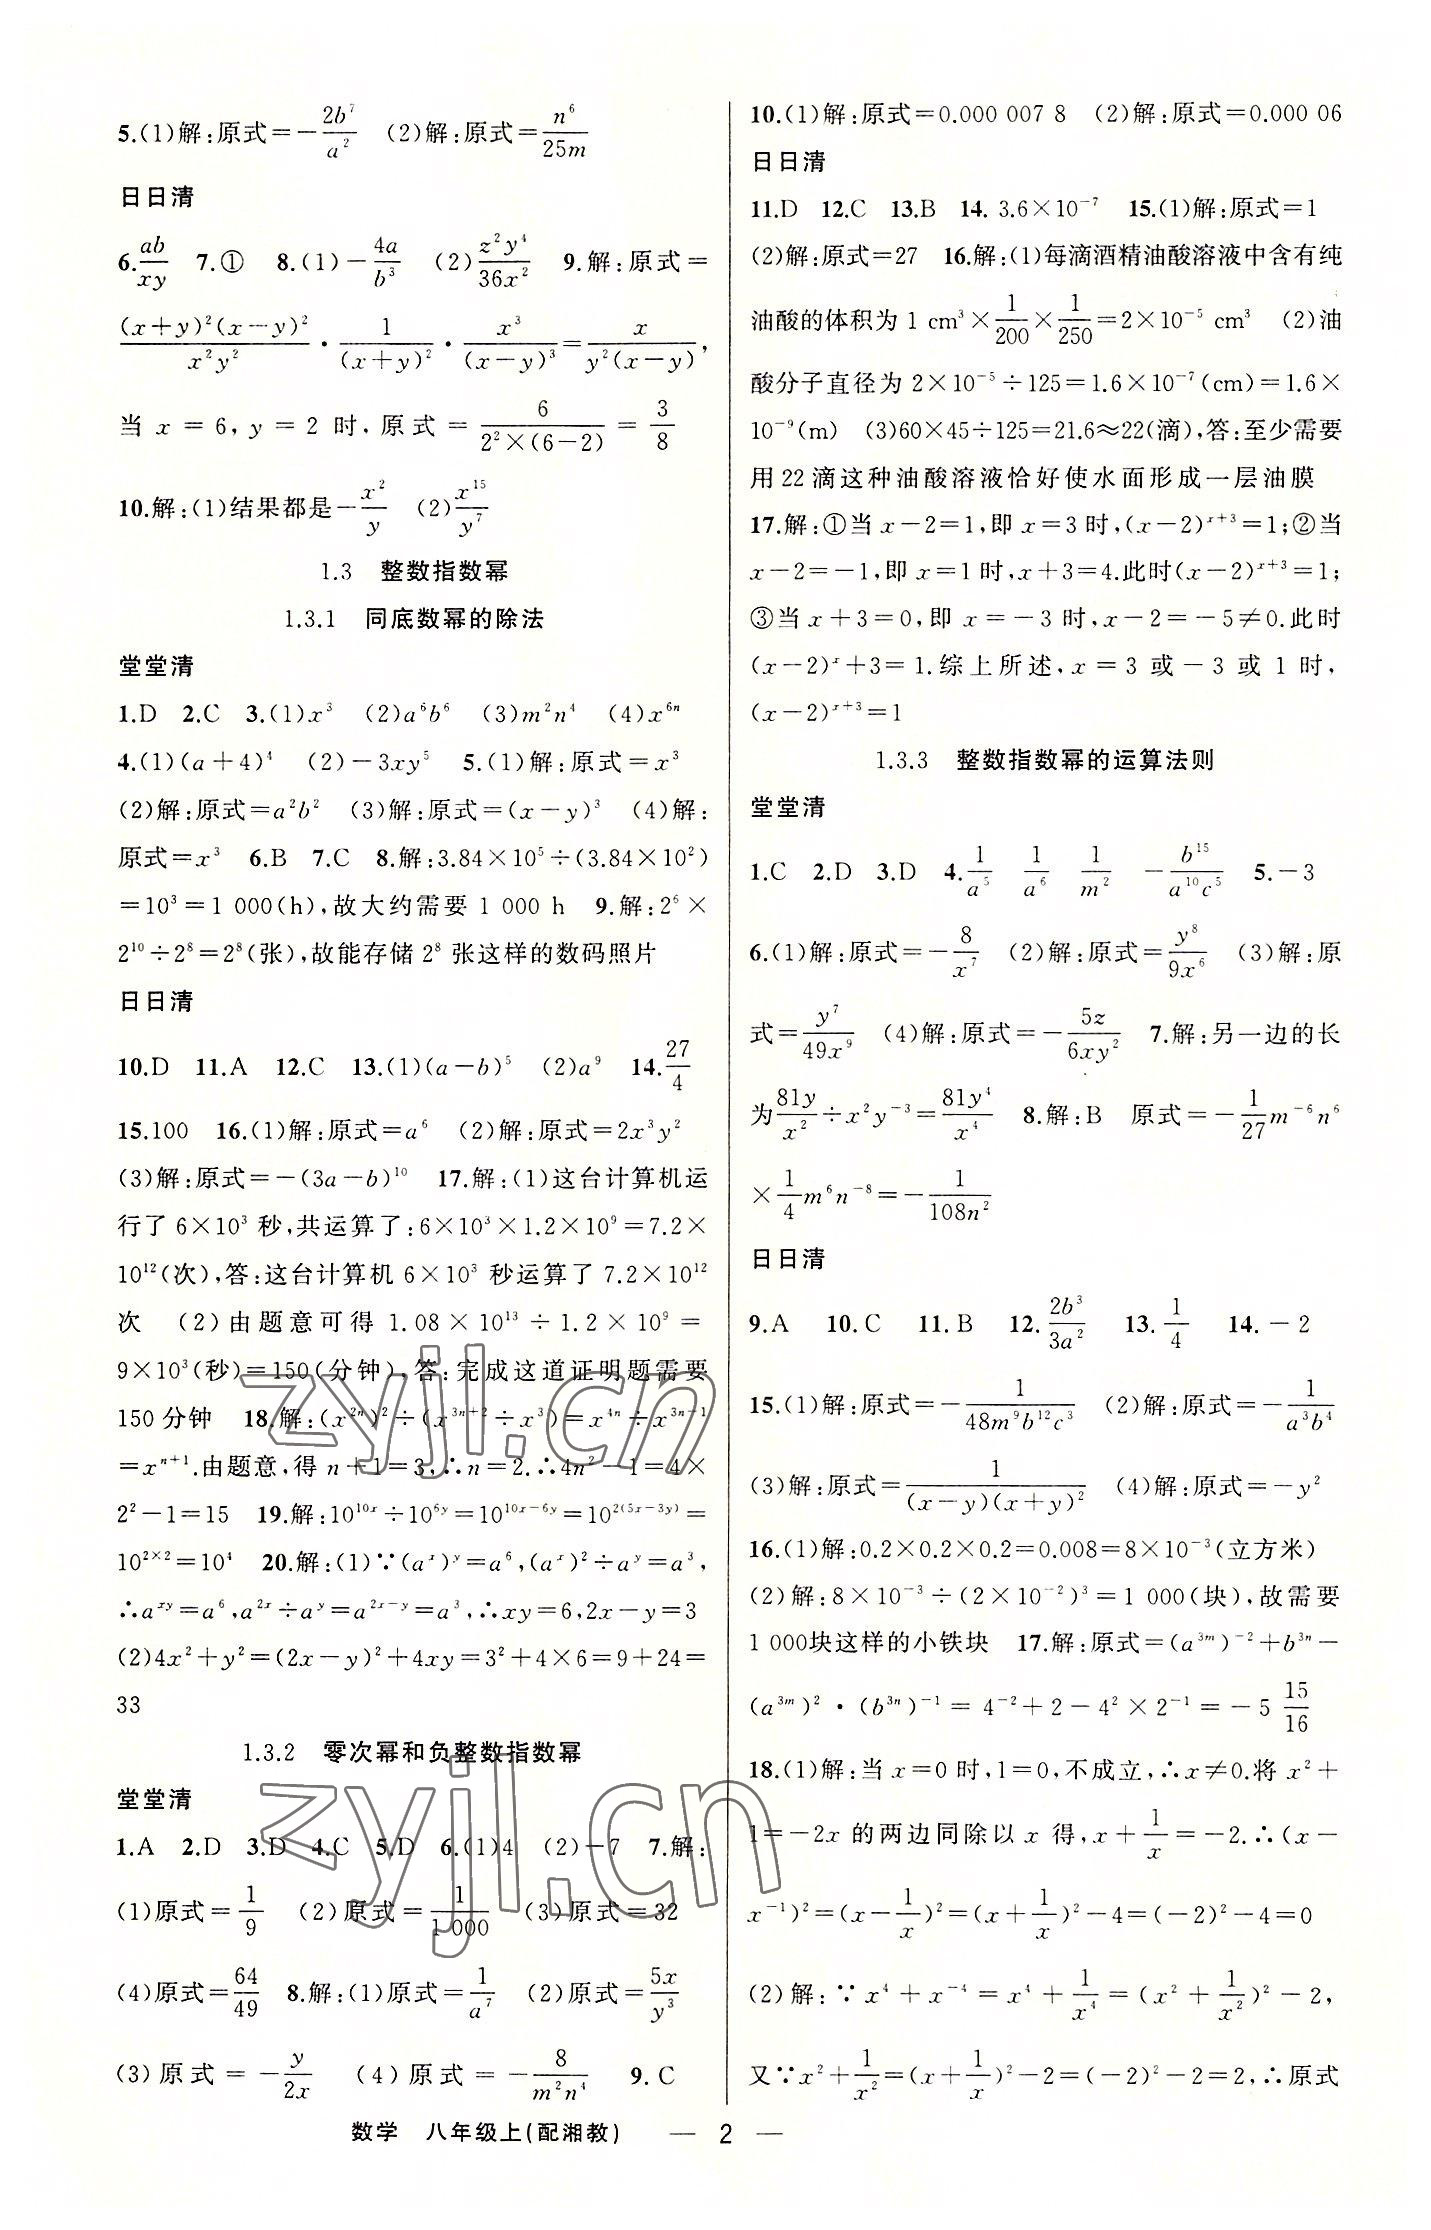 5.(1)解:原式=-2b⁷/a²  (2)解:原式=n⁶/25m
日日清
6.ab/xy  7.①  8.(1)-4a/b³  (2)z²y⁴/36x²  9.解:原式=
(x+y)²(x-y)²/x²y²·1/(x+y)²·x³/(x-y)³=x/y²(x-y),
当 x=6,y=2 时,原式=6/2²×(6-2)=3/8
10.解:(1)结果都是-x²/y  (2)x¹⁵/y⁷
1.3 整数指数幂
1.3.1 同底数幂的除法
堂堂清
1.D  2.C  3.(1)x³  (2)a⁶b⁶  (3)m²n⁴  (4)x⁶ⁿ
4.(1)(a+4)⁴  (2)-3xy⁵  5.(1)解:原式=x³
(2)解:原式=a²b²  (3)解:原式=(x-y)³  (4)解:
原式=x³  6.B  7.C  8.解:3.84×10⁵÷(3.84×10²)
=10³=1 000(h),故大约需要 1 000 h  9.解:2⁶×
2¹⁰÷2⁸=2⁸(张),故能存储 2⁸ 张这样的数码照片
日日清
10.D  11.A  12.C  13.(1)(a-b)⁵  (2)a⁹  14.27/4
15.100  16.(1)解:原式=a⁶  (2)解:原式=2x³y²
(3)解:原式=-(3a-b)¹⁰  17.解:(1)这台计算机运
行了 6×10³ 秒,共运算了:6×10³×1.2×10⁹=7.2×
10¹²(次),答:这台计算机 6×10³ 秒运算了 7.2×10¹²
次  (2)由题意可得 1.08×10¹³÷1.2×10⁹=
9×10³(秒)=150(分钟),答:完成这道证明题需要
150 分钟  18.解:(x²ⁿ)²÷(x³ⁿ⁺²÷x³)=x⁴ⁿ÷x³ⁿ⁻¹
=xⁿ⁺¹.由题意,得 n+1=3,∴n=2.∴4n²-1=4×
2²-1=15  19.解:10^(10x)÷10^(6y)=10^(10x-6y)=10^(2(5x-3y))=
10^(2×2)=10⁴  20.解:(1)∵(aˣ)ʸ=a⁶,(aˣ)²÷aʸ=a³,
∴a^(xy)=a⁶,a^(2x)÷aʸ=a^(2x-y)=a³,∴xy=6,2x-y=3
(2)4x²+y²=(2x-y)²+4xy=3²+4×6=9+24=
33
1.3.2 零次幂和负整数指数幂
堂堂清
1.A  2.D  3.D  4.C  5.D  6.(1)4  (2)-7  7.解:
(1)原式=1/9  (2)原式=1/1 000  (3)原式=32
(4)原式=64/49  8.解:(1)原式=1/a⁷  (2)原式=5x/y³
(3)原式=-y/2x  (4)原式=-8/m²n⁴  9.C
10.(1)解:原式=0.000 007 8  (2)解:原式=0.000 06
日日清
11.D  12.C  13.B  14. 3.6×10⁻⁷  15.(1)解:原式=1
(2)解:原式=27  16.解:(1)每滴酒精油酸溶液中含有纯
油酸的体积为 1 cm³×1/200×1/250=2×10⁻⁵ cm³  (2)油
酸分子直径为 2×10⁻⁵÷125=1.6×10⁻⁷(cm)=1.6×
10⁻⁹(m)  (3)60×45÷125=21.6≈22(滴),答:至少需要
用 22 滴这种油酸溶液恰好使水面形成一层油膜
17.解:①当 x-2=1,即 x=3 时,(x-2)ˣ⁺³=1;②当
x-2=-1,即 x=1 时,x+3=4.此时(x-2)ˣ⁺³=1;
③当 x+3=0,即 x=-3 时,x-2=-5≠0.此时
(x-2)ˣ+3=1.综上所述,x=3 或-3 或 1 时,
(x-2)ˣ⁺³=1
1.3.3 整数指数幂的运算法则
堂堂清
1.C  2.D  3.D  4.1/a⁵  1/a⁶  1/m²  -b¹⁵/a¹⁰c⁵  5.-3
6.(1)解:原式=-8/x⁷  (2)解:原式=y⁸/9x⁶  (3)解:原
式=y⁷/49x⁹  (4)解:原式=-5z/6xy²  7.解:另一边的长
为81y/x²÷x²y⁻³=81y⁴/x⁴  8.解:B  原式=-1/27m⁻⁶n⁶
×1/4m⁶n⁻⁸=-1/108n²
日日清
9.A  10.C  11.B  12.2b³/3a²  13.1/4  14.-2
15.(1)解:原式=-1/48m⁹b¹²c³  (2)解:原式=-1/a³b⁴
(3)解:原式=1/(x-y)(x+y)²  (4)解:原式=-y²
16.(1)解:0.2×0.2×0.2=0.008=8×10⁻³(立方米)
(2)解:8×10⁻³÷(2×10⁻²)³=1 000(块),故需要
1 000块这样的小铁块  17.解:原式=(a³ᵐ)⁻²+b³ⁿ-
(a³ᵐ)²·(b³ⁿ)⁻¹=4⁻²+2-4²×2⁻¹=-5 15/16
18.(1)解:当 x=0 时,1=0,不成立,∴x≠0.将 x²+
1=-2x 的两边同除以 x 得,x+1/x=-2.∴(x-
x⁻¹)²=(x-1/x)²=(x+1/x)²-4=(-2)²-4=0
(2)解:∵x⁴+x⁻⁴=x⁴+1/x⁴=(x²+1/x²)²-2,
又∵x²+1/x²=(x+1/x)²-2=(-2)²-2=2,∴原式
数学 八年级上(配湘教) — 2 —
zyjl.cn
zyjl.cn